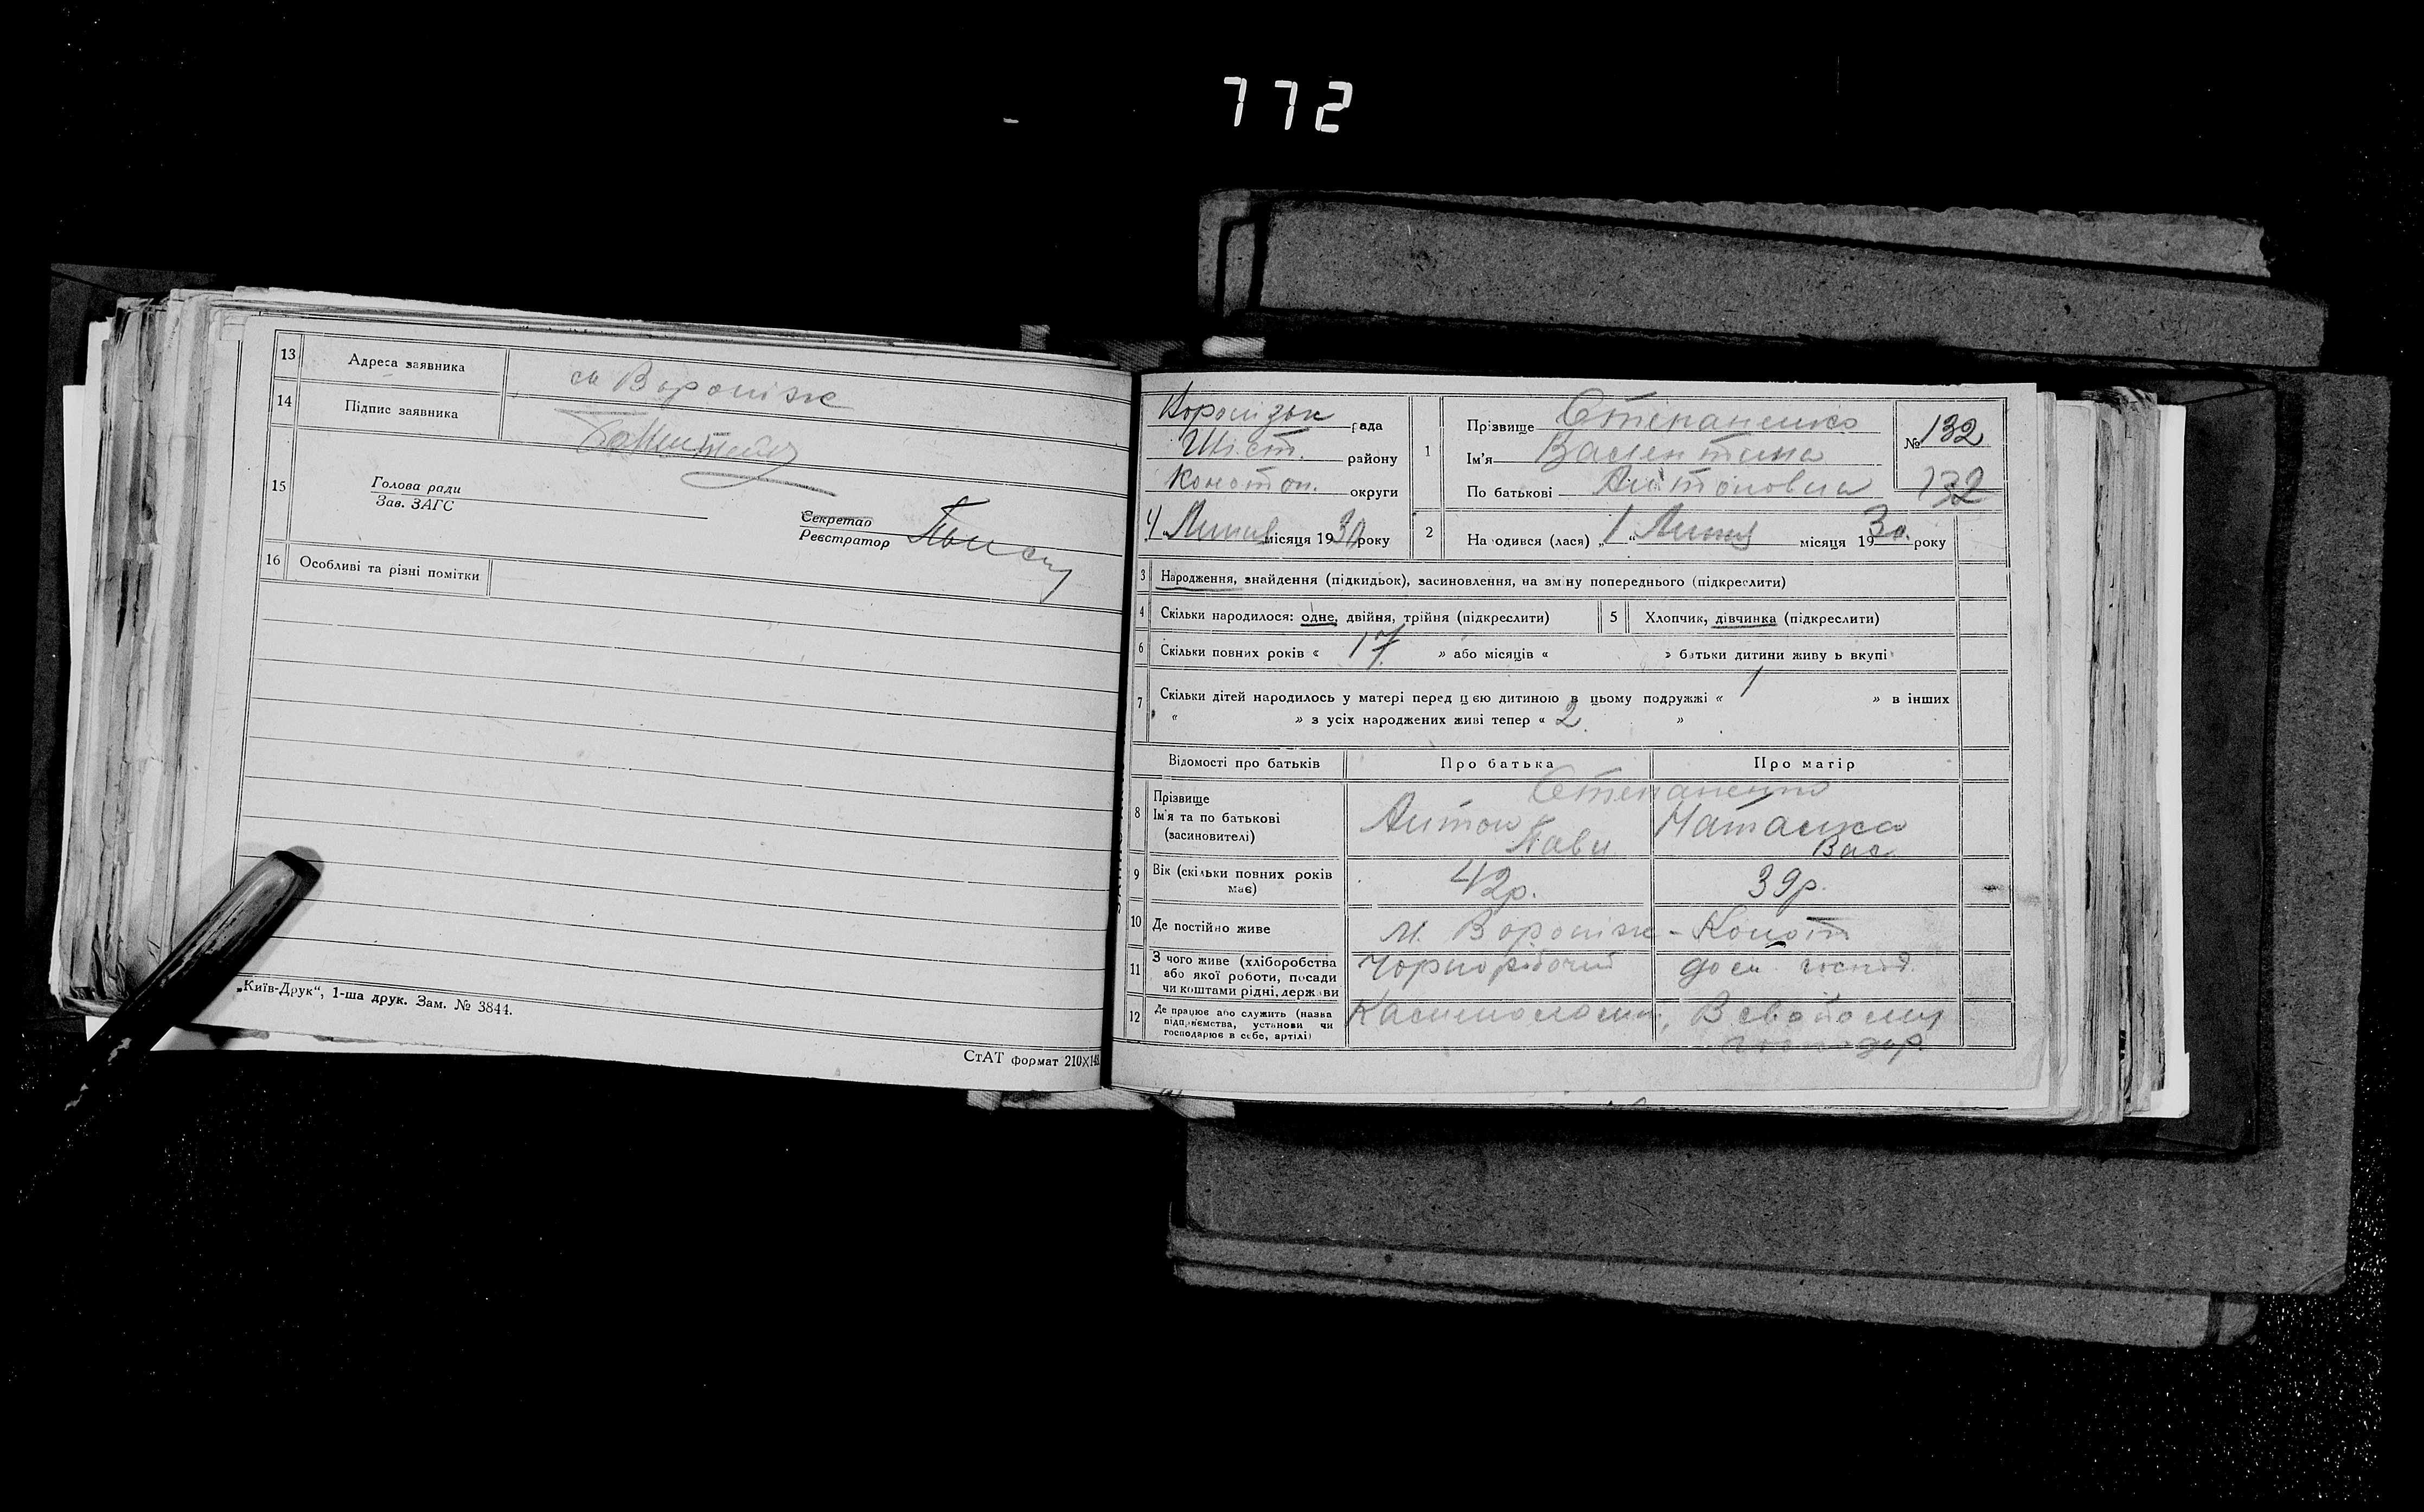 772
13 Адреса заявника см Вороніж
14 Підпис заявника
15 Голова ради
Зав. ЗАГС
Секретар
Реєстратор
16 Особливі та різні помітки
„Київ-Друк“, 1-ша друк. Зам. № 3844.
СтАТ формат 210×148
рада
Шіст. району
Конотоп. округи
4 Липня місяця 1930 року
1 Прізвище Степаненко
Ім'я Валентина
По батькові Антоновна
№ 132
132
2 На одився (лася) „1“ Липня місяця 1930. року
3 Народження, знайдення (підкидьок), засиновлення, на зміну попереднього (підкреслити)
4 Скільки народилося: одне, двійня, трійня (підкреслити) 5 Хлопчик, дівчинка (підкреслити)
6 Скільки повних років « 17 » або місяців « » батьки дитини живу ь вкупі
7 Скільки дітей народилось у матері перед цією дитиною в цьому подружжі « 1 » в інших
« » з усіх народжених живі тепер « 2 »
Відомості про батьків Про батька Про матір
Степаненко
8 Прізвище
Ім'я та по батькові
(засиновителі)
Антон Павл Наталка Вас
9 Вік (скільки повних років має) 42р. 39р.
10 Де постійно живе м. Вороніж - Конот
11 З чого живе (хліборобства
або якої роботи, посади
чи коштами рідні, держави
Чорноробочий дом. господ.
12 Де працює або служить (назва
підприємства, установи чи
господарює в себе, артілі)
В свойому
господар.